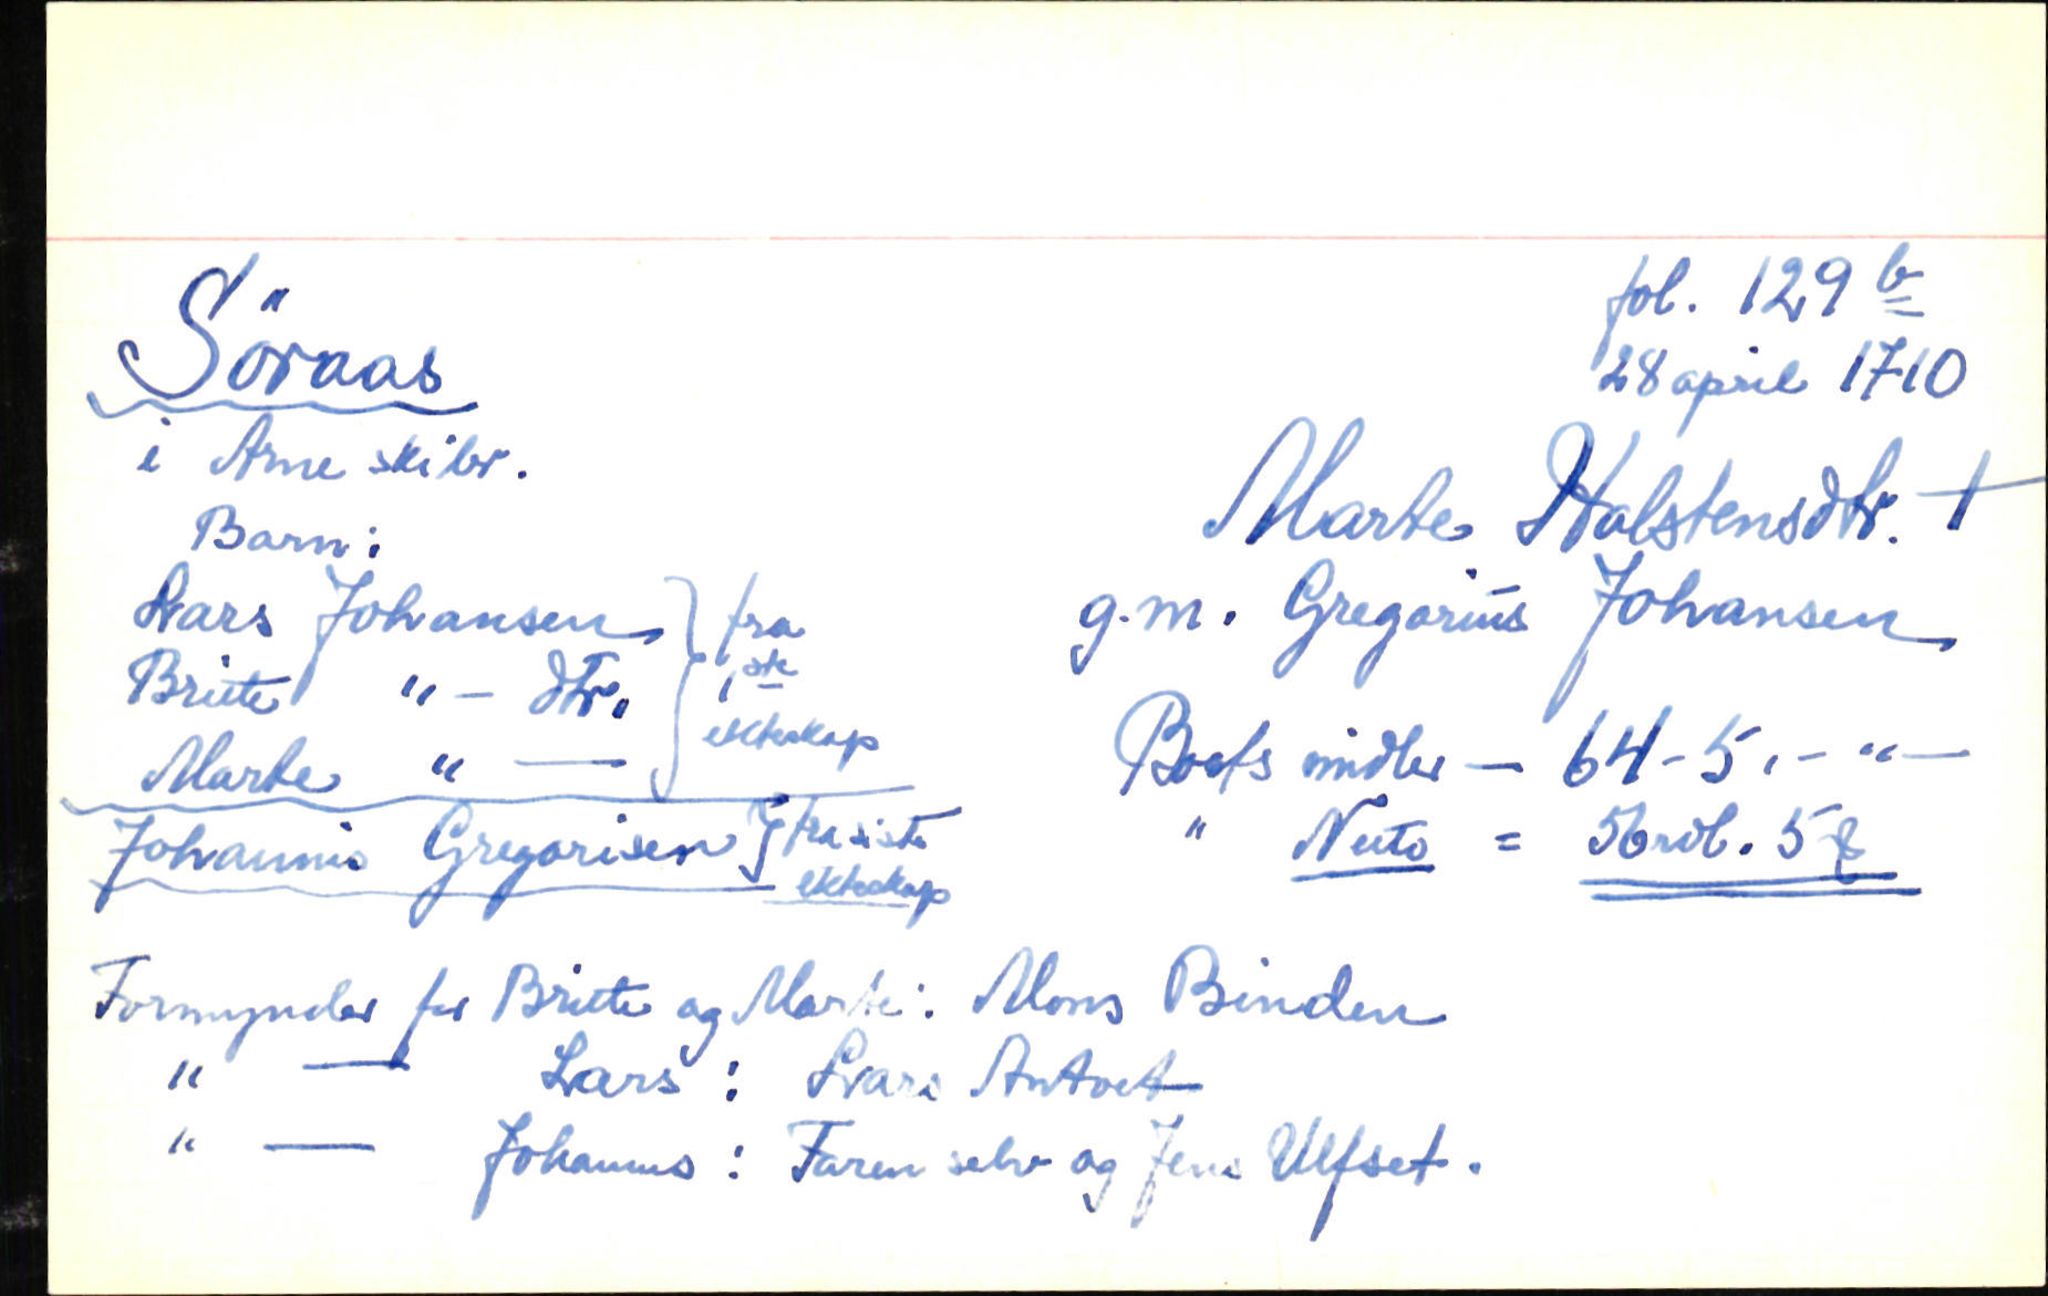 fol. 129 b
28 april 1710
Söraas
i Arne skibr.
Marte Halstensdtr. †
g.m. Gregorius Johansen
Barn:
Lars Johansen
Britte " – dtr.
Marte " —
} fra
1ste
ekteskap
Johannis Gregorisen } fra siste
ekteskap
Boets midler — 64 - 5 . - " —
" Netto = 56 rdl. 5 ß
Formynder for Britte og Marte: Mons Binden
" — Lars : Lars Antvet
" — Johannis : Faren selv og Jens Ulfset.